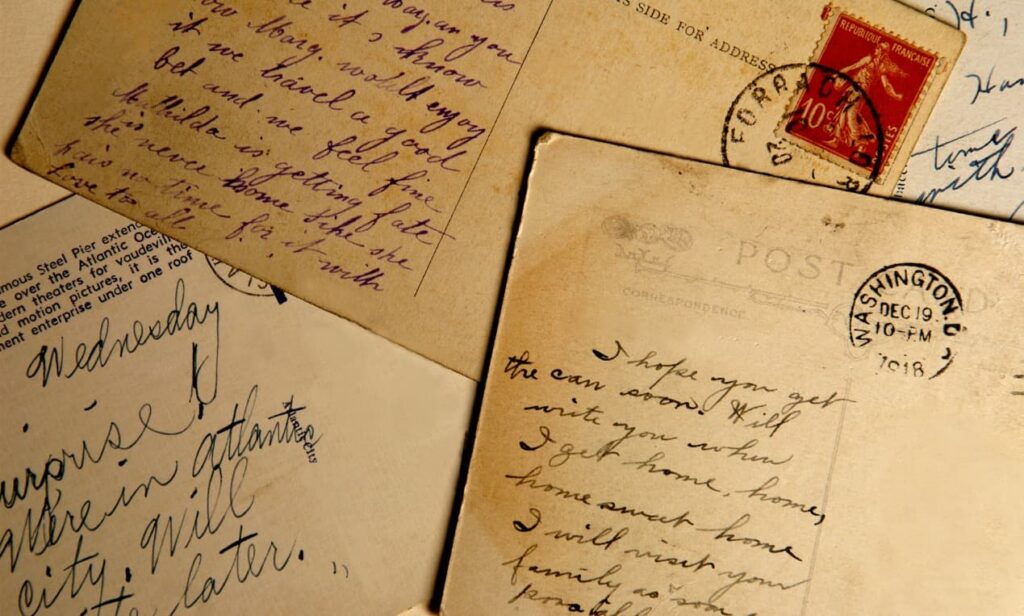 way. an you
now Mary. would enjoy
it we travel a good
bet and we feel fine
Mathilda is getting fate
she is never home like she
hais no time for it with
love to all
THIS SIDE FOR ADDRESS
REPUBLIQUE FRANÇAISE
10c
POSTES
amous Steel Pier exten
e over the Atlantic Oce
dern theaters for vaudevil
d motion pictures, it is the
ment enterprise under one roof
Wednesday
urprise!
Were in atlantic
city. Will
later.
POST CARD
CORRESPONDENCE
WASHINGTON, D
DEC 19.
10-PM
1918
I hope you get
the can soon. Will
write you when
I get home, home,
home sweat home
I will visit your
family as soon
time
with.